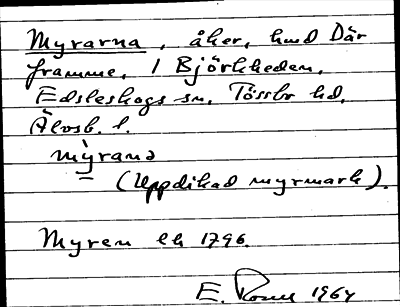 Myrarna, åker, hmd Där
framme, 1 Björkheden,
Edsleskogs sn, Tössbo hd,
Älvsb. l.
mỳrana
(Uppdikad myrmark).
Myren lh 1796.
E. 1964